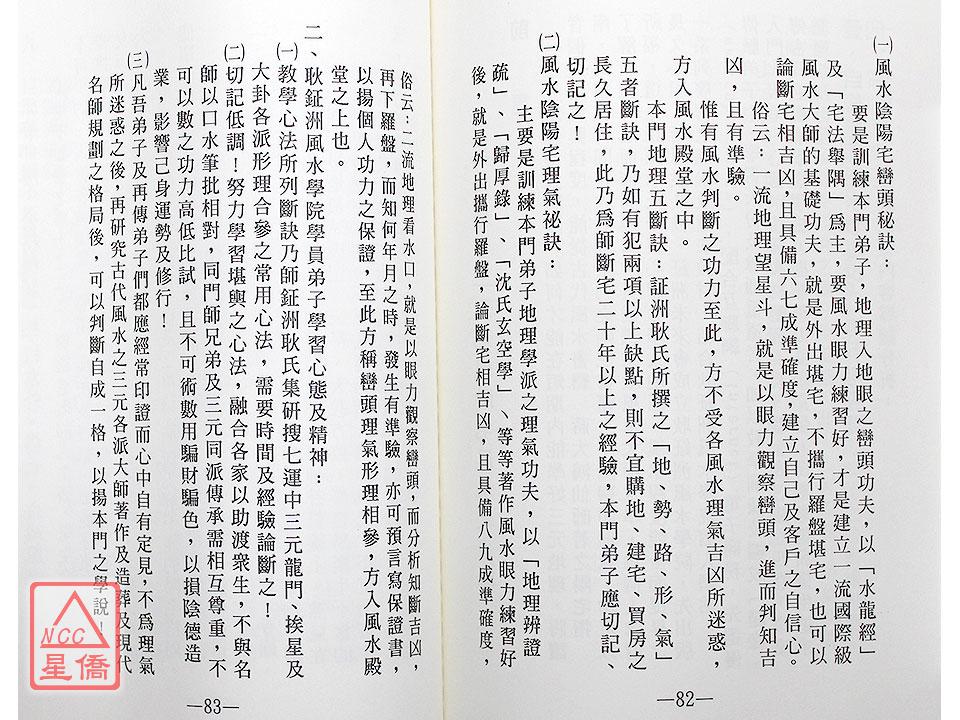 ㈠風水陰陽宅巒頭秘訣：
要是訓練本門弟子，地理入地眼之巒頭功夫，以「水龍經」
及「宅法舉隅」為主，要風水眼力練習好，才是建立一流國際級
風水大師的基礎功夫，就是外出堪宅，不攜行羅盤堪宅，也可以
論斷宅相吉凶，且具備六七成準確度，建立自己及客戶之自信心。
俗云：一流地理望星斗，就是以眼力觀察巒頭，進而判知吉
凶，且有準驗。
惟有風水判斷之功力至此，方不受各風水理氣吉凶所迷惑，
方入風水殿堂之中。
本門地理五斷訣：証洲耿氏所撰之「地、勢、路、形、氣」
五者斷訣，乃如有犯兩項以上缺點，則不宜購地、建宅、買房之
長久居住，此乃為師斷宅二十年以上之經驗，本門弟子應切記、
切記之！
㈡風水陰陽宅理氣祕訣：
主要是訓練本門弟子地理學派之理氣功夫，以「地理辨證
疏」、「歸厚錄」、「沈氏玄空學」、等等著作風水眼力練習好
後，就是外出攜行羅盤，論斷宅相吉凶，且具備八九成準確度，
—82—
俗云：二流地理看水口，就是以眼力觀察巒頭，而分析知斷吉凶，
再下羅盤，而知何年月之時，發生有準驗，亦可預言寫保證書，
以揚個人功力之保證，至此方稱巒頭理氣形理相參，方入風水殿
堂之上也。
二、耿鉦洲風水學院學員弟子學習心態及精神：
㈠教學心法所列斷訣乃師鉦洲耿氏集研搜七運中三元龍門、挨星及
大卦各派形理合參之常用心法，需要時間及經驗論斷之！
㈡切記低調！努力學習堪輿之心法，融合各家以助渡衆生，不與名
師以口水筆批相對，同門師兄弟及三元同派傳承需相互尊重，不
可以數之功力高低比試，且不可術數用騙財騙色，以損陰德造
業，影響己身運勢及修行！
㈢凡吾弟子及再傳弟子們都應經常印證而心中自有定見，不為理氣
所迷惑之後，再研究古代風水之三元各派大師著作及造葬及現代
名師規劃之格局後，可以判斷自成一格，以揚本門之學說！
—83—
NCC
星僑